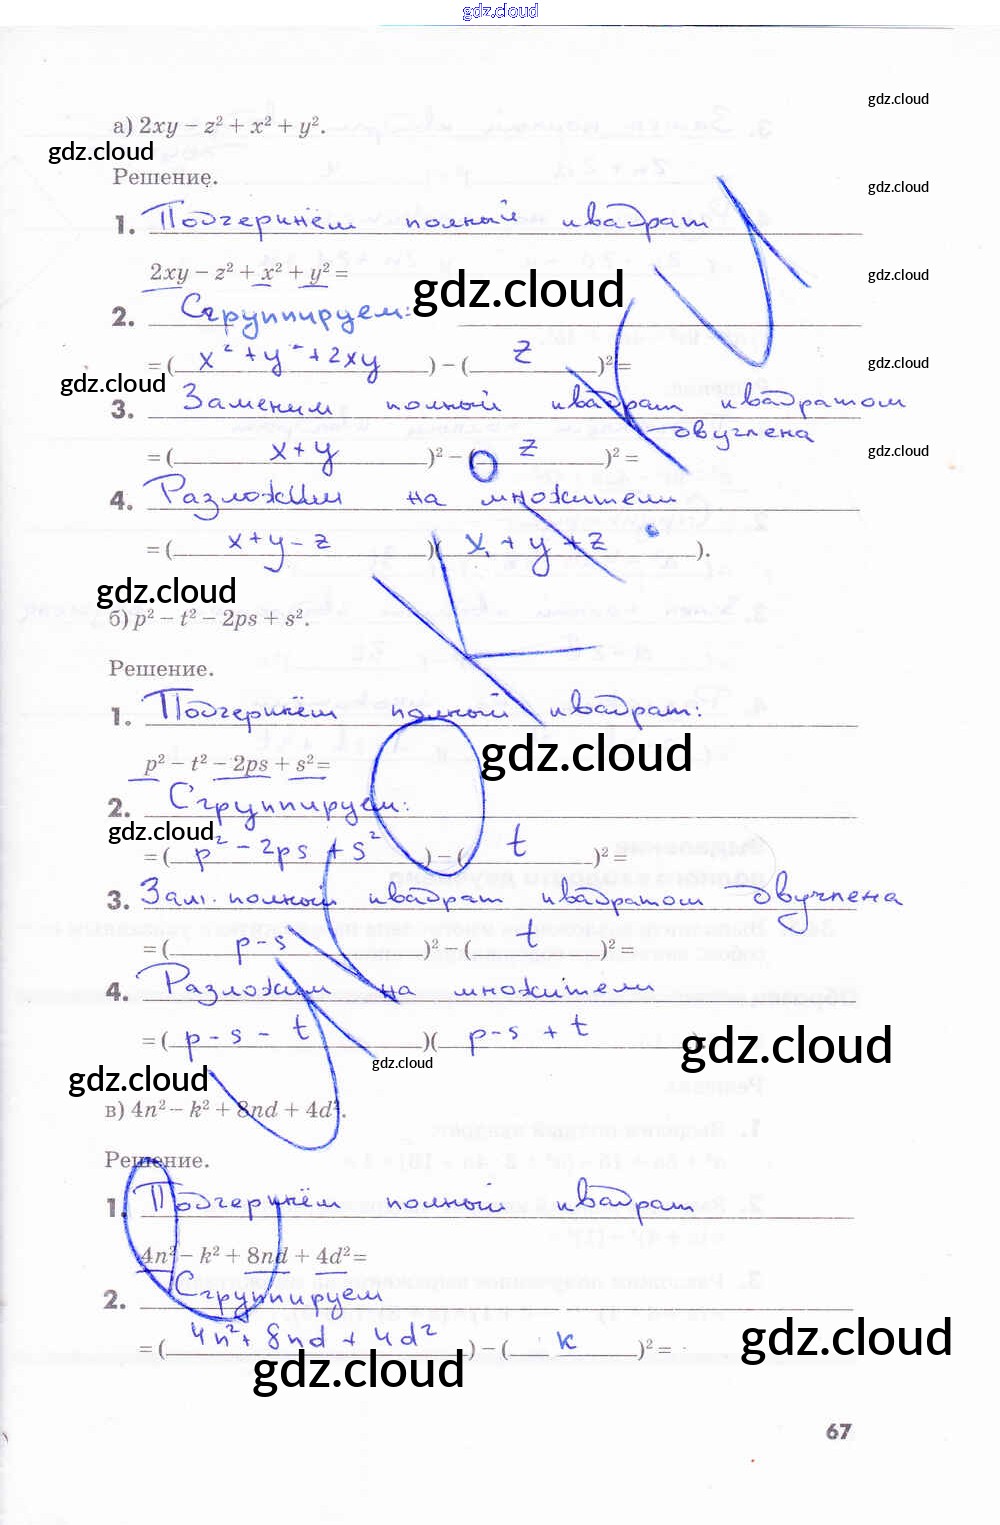 gdz.cloud
gdz.cloud
а) 2xy − z² + x² + y².
gdz.cloud
Решение.
gdz.cloud
1. Подчеринём полный квадрат
2xy − z² + x² + y² =
gdz.cloud
gdz.cloud
2. Сгруппируем:
= ( x² + y² + 2xy ) − ( z )² =
gdz.cloud
gdz.cloud
3. Заменим полный квадрат квадратом
двучлена
= ( x + y )² − ( z )² =
gdz.cloud
4. Разложим на множители
= ( x + y − z )( x + y + z ).
gdz.cloud
б) p² − t² − 2ps + s².
Решение.
1. Подчеринём полный квадрат:
p² − t² − 2ps + s² =
gdz.cloud
2. Сгруппируем:
gdz.cloud
= ( p² − 2ps + s² ) − ( t )² =
3. Зам. полный квадрат квадратом двучлена
= ( p − s )² − ( t )² =
4. Разложим на множители
= ( p − s − t )( p − s + t )
gdz.cloud
gdz.cloud
gdz.cloud
в) 4n² − k² + 8nd + 4d².
Решение.
1. Подчеринём полный квадрат
4n² − k² + 8nd + 4d² =
2. Сгруппируем
= ( 4n² + 8nd + 4d² ) − ( k )² =
gdz.cloud
gdz.cloud
67